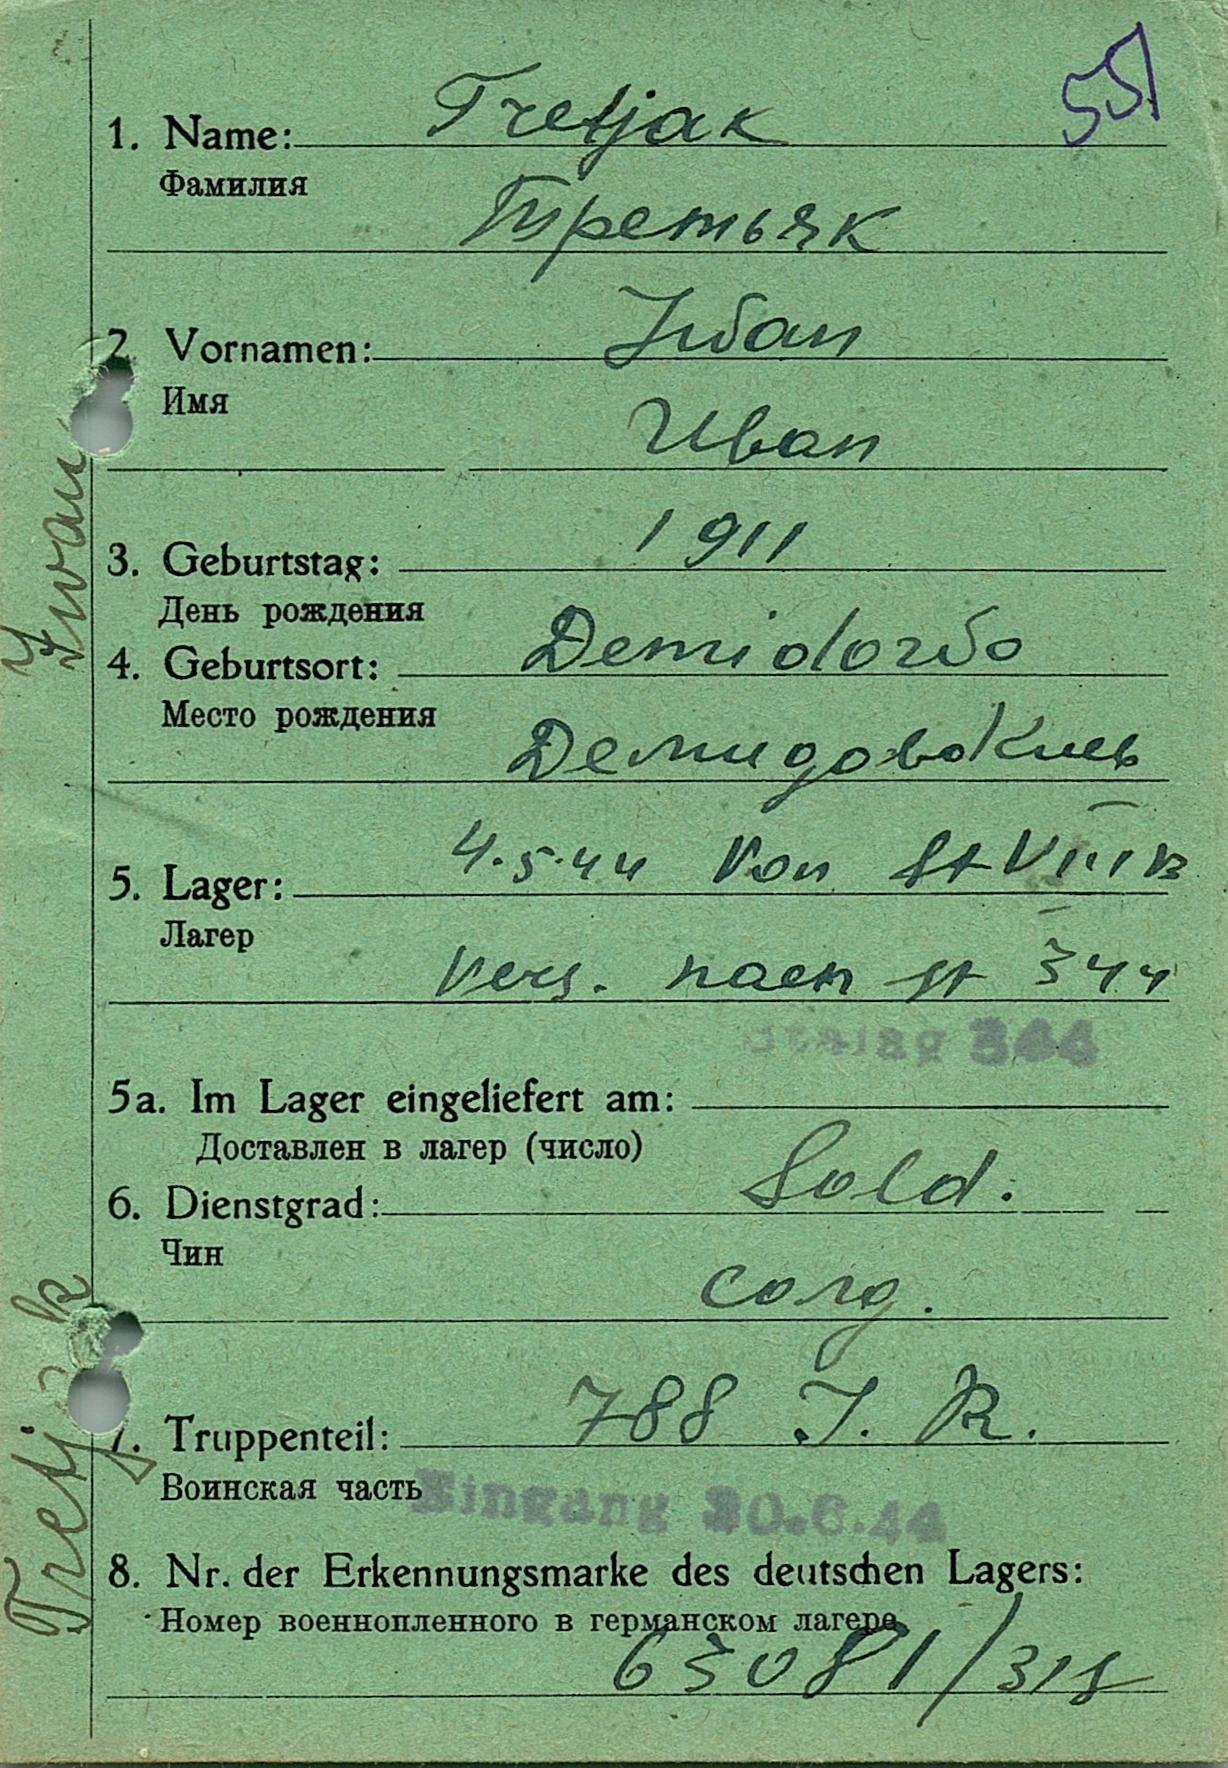 551
1. Name: Tretjak
Фамилия
Третьяк
2 Vornamen: Iwan
Имя
Иван
3. Geburtstag: 1911
День рождения
4. Geburtsort: Demidowo
Место рождения
Демидово Киев
5. Lager: 4.5.44 Von St VIII B
Лагер
Vers. nach St 344
Stalag 344
5a. Im Lager eingeliefert am:
Доставлен в лагер (число)
6. Dienstgrad: Sold.
Чин
солд.
7. Truppenteil: 788 I. R.
Воинская часть
Eingang 30.6.44
8. Nr. der Erkennungsmarke des deutschen Lagers:
Номер военнопленного в германском лагере
63081/318
Tretjak Iwan